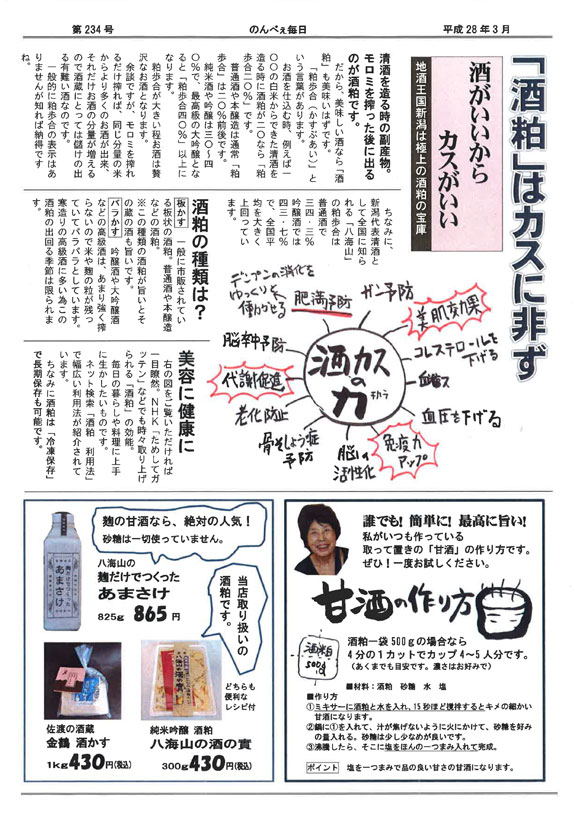 第234号
のんべぇ毎日
平成28年3月
「酒粕」はカスに非ず
酒がいいから
カスがいい
地酒王国新潟は極上の酒粕の宝庫
清酒を造る時の副産物。
モロミを搾った後に出る
のが酒粕です。
だから、美味しい酒なら「酒
粕」も美味いはずです。
「粕歩合（かすぶあい）」と
いう言葉があります。
お酒を仕込む時、例えば一
〇〇の白米からできた清酒を
造る時に酒粕が二〇なら「粕
歩合二〇％」です。
普通酒や本醸造は通常「粕
歩合」は二〇％前後です。
純米酒や吟醸は三〇～四
〇％で、最高級の大吟醸とな
ると「粕歩合四〇％」以上に
なります。
粕歩合が大きい程お酒は贅
沢なお酒となります。
余談ですが、モロミを搾れ
るだけ搾れば、同じ分量の米
からより多くのお酒が出来、
それだけお酒の分量が増える
ので酒蔵にとっては儲けの出
る有難い酒なのです。
一般的に粕歩合の表示はあ
りませんが知れば納得です
ね。
ちなみに、
新潟代表清酒と
して全国に知ら
れる「八海山」
の粕歩合は
普通酒で
三四・三％
吟醸酒では
四三・七％
で、全国平
均を大きく
上回ってい
ます。
酒粕の種類は？
板かす 一般に市販されてい
る板状の酒粕。普通酒や本醸造
などの酒粕。
※この種類の酒粕が旨いとそ
の蔵の酒も旨いです。
バラかす 吟醸酒や大吟醸酒
などの高級酒は、あまり強く搾
らないので米や麹の粒が残っ
ていてバラバラとしています。
寒造りの高級酒に多い為この
酒粕の出回る季節は限られま
す。
デンプンの消化を
ゆっくりと
働かせる
肥満予防
ガン予防
美肌効果
コレステロールを
下げる
血圧を下げる
免疫力
アップ
脳の
活性化
骨そしょう症
予防
老化防止
代謝促進
脳卒中予防
酒カス
の
力
チカラ
美容に健康に
右の図をご覧いただければ
一目瞭然。NHK「ためしてガ
ッテン」などでも時々取り上げ
られる「酒粕」の効能。
毎日の暮らしや料理に上手
に生かしたいものです。
ネット検索「酒粕 利用法」
で幅広い利用法が紹介されて
います。
ちなみに酒粕は「冷凍保存」
で長期保存も可能です。
麹の甘酒なら、絶対の人気！
砂糖は一切使っていません。
八海山の
麹だけでつくった
あまさけ
825g 865円
麹だけでつくった
あまさけ
当店取り扱いの
酒粕です。
どちらも
便利な
レシピ付
佐渡の酒蔵
金鶴 酒かす
1kg430円(税込)
純米吟醸 酒粕
八海山の酒の實
300g430円(税込)
誰でも！簡単に！最高に旨い！
私がいつも作っている
取って置きの「甘酒」の作り方です。
ぜひ！一度お試しください。
甘酒の作り方
酒粕
500g
酒粕一袋500gの場合なら
4分の1カットでカップ4～5人分です。
（あくまでも目安です。濃さはお好みで）
■材料：酒粕 砂糖 水 塩
■作り方
①ミキサーに酒粕と水を入れ、15秒ほど撹拌するとキメの細かい
甘酒になります。
②鍋に①を入れて、汁が焦げないように火にかけて、砂糖を好み
の量入れる。砂糖は少し少なめが良いです。
③沸騰したら、そこに塩をほんの一つまみ入れて完成。
ポイント 塩を一つまみで品の良い甘さの甘酒になります。